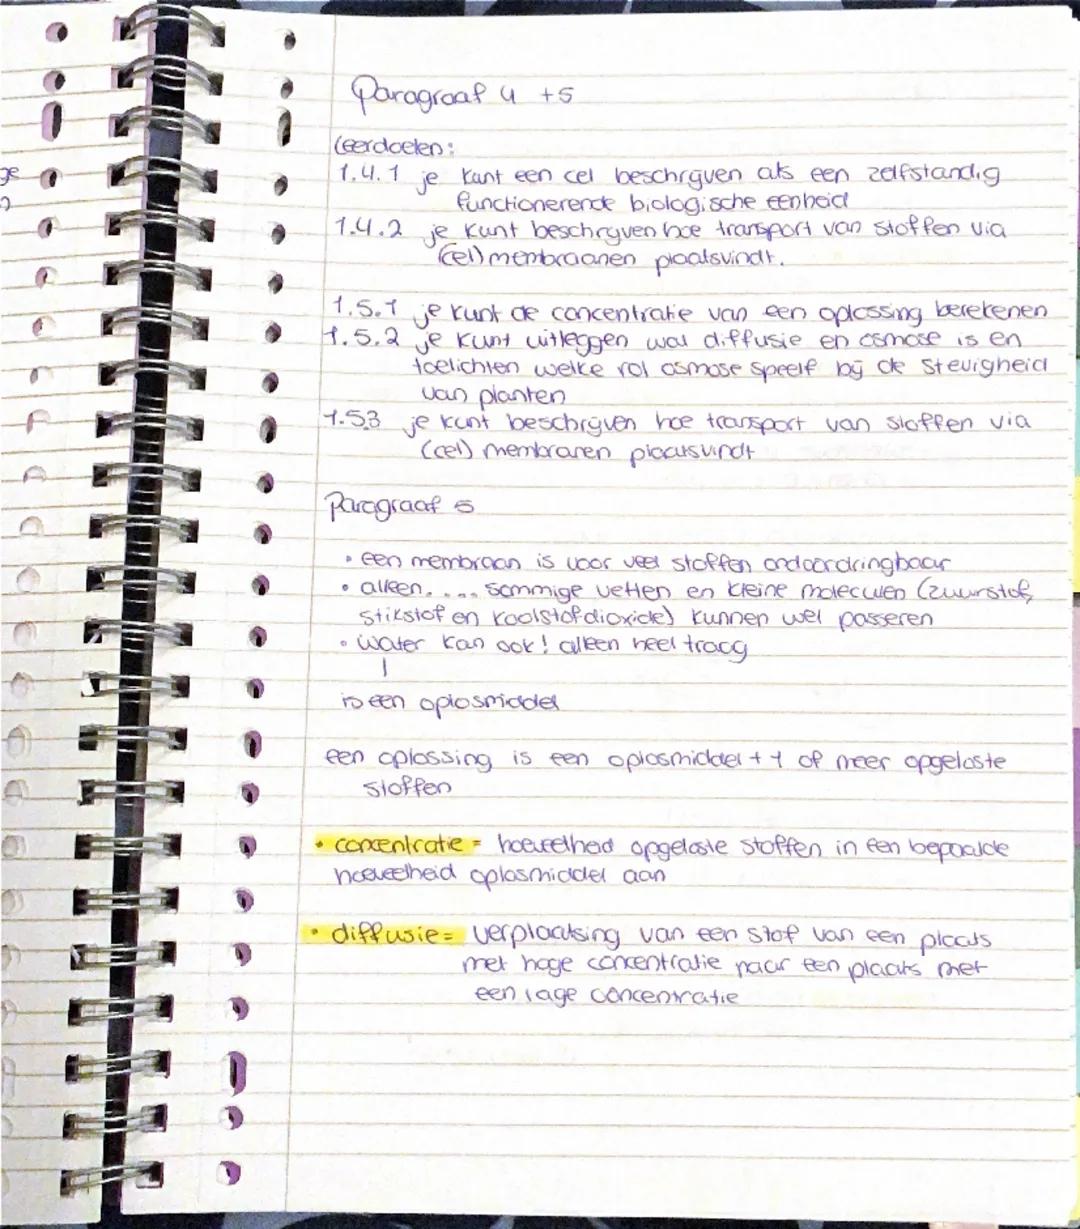 Paragraaf 4 +5
leerdoelen:
1.4.1 je kunt een cel beschrijven als een zelfstandig
functionerende biologische eenheid
1.4.2 je kunt beschrijven hoe transport van stoffen via
(cel) membraanen plaatsvindt.
1.5.1 je kunt de concentratie van een oplossing berekenen
1.5.2 je kunt uitleggen wat diffusie en osmose is en
toelichten welke rol osmose speelt bij de stevigheid
van planten
1.5.3 je kunt beschrijven hoe transport van stoffen via
(cel) membranen plaatsvindt
Paragraaf 5
• een membraan is voor veel stoffen ondoordringbaar
• alleen.... sommige vetten en kleine moleculen (zuurstof,
stikstof en koolstofdioxide) kunnen wel passeren
• water kan ook! alleen heel traag
is een oplosmiddel
een oplossing is een oplosmiddel + 1 of meer opgeloste
stoffen
• concentratie = hoeveelheid opgeloste stoffen in een bepaalde
hoeveelheid oplosmiddel aan
• diffusie = verplaatsing van een stof van een plaats
met hoge concentratie naar een plaats met
een lage concentratie
ge